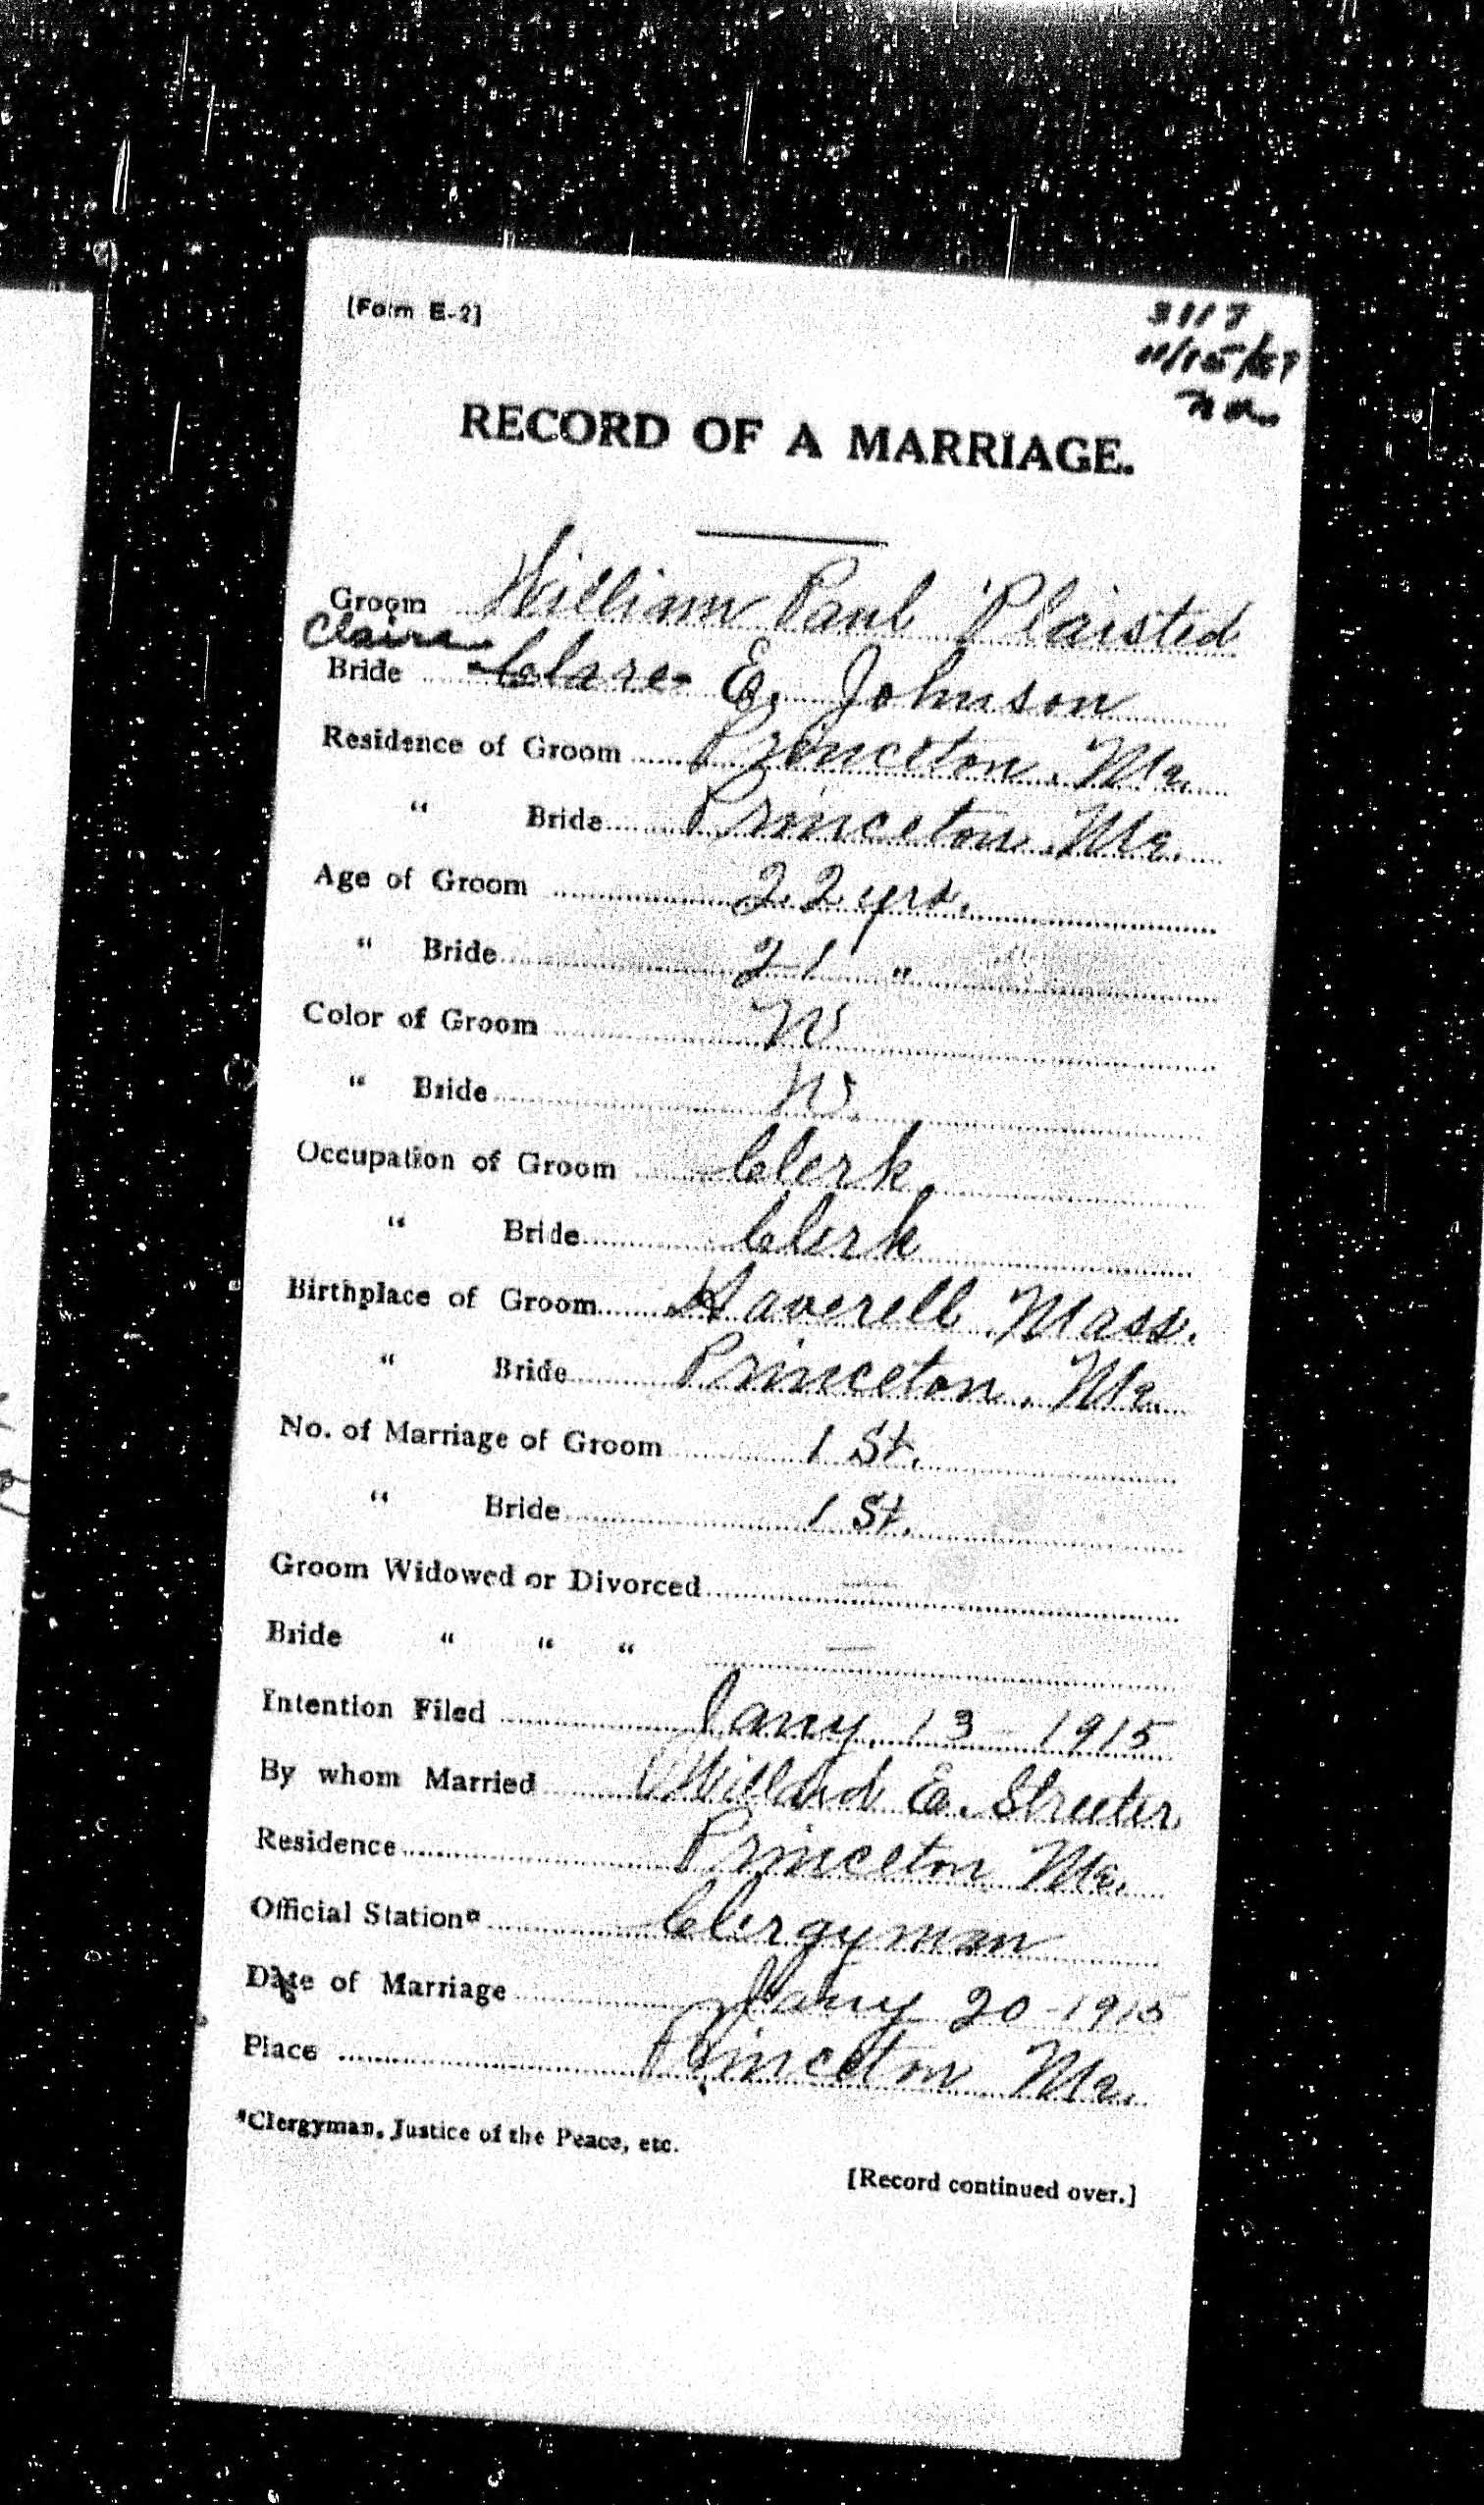 [Form E-2]
3117
11/15/57
RECORD OF A MARRIAGE.
Groom William Paul Plaisted
Claire
Bride Clare E. Johnson
Residence of Groom Princeton, Me.
" Bride Princeton, Me.
Age of Groom 22 yrs.
" Bride 21 "
Color of Groom W
" Bride W.
Occupation of Groom Clerk.
" Bride Clerk
Birthplace of Groom Haverell Mass.
" Bride Princeton, Me.
No. of Marriage of Groom 1 st.
" Bride 1 st.
Groom Widowed or Divorced —
Bride " " " —
Intention Filed Jany. 13 - 1915
By whom Married Willard E. Streeter
Residence Princeton Me.
Official Station* Clergyman
Date of Marriage Jany 20 - 1915
Place Princeton Me.
*Clergyman, Justice of the Peace, etc.
[Record continued over.]